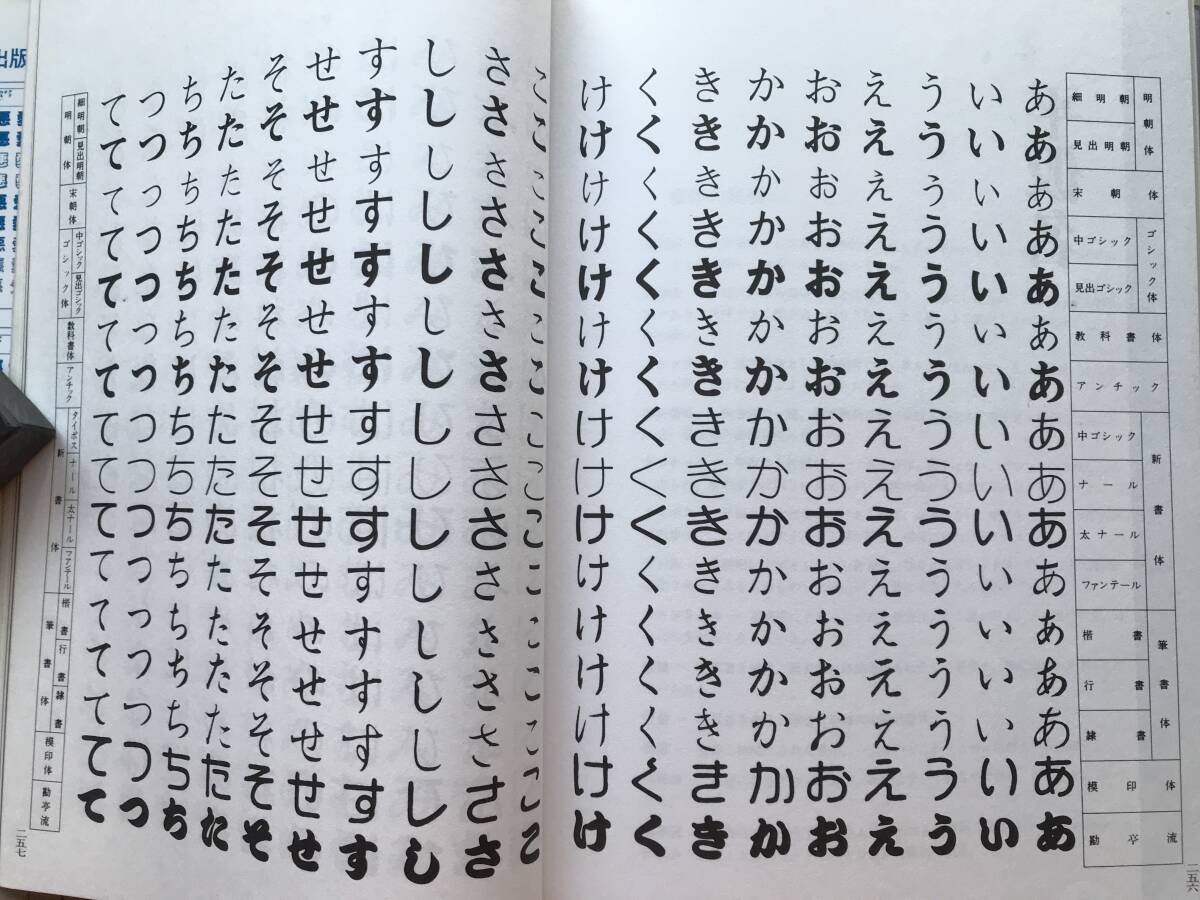 明朝体
細明朝
見出明朝
宋朝体
ゴシック体
中ゴシック
見出ゴシック
教科書体
アンチック
新書体
中ゴシック
ナール
太ナール
ファンテール
筆書体
楷書
行書
隷書
模印体
勘亭流
ああああああああああああああああ
いいいいいいいいいいいいいいいい
うううううううううううううううう
ええええええええええええええええ
おおおおおおおおおおおおおおおお
かかかかかかかかかかかかかかかか
きききききききききききききききき
くくくくくくくくくくくくくくくく
けけけけけけけけけけけけけけけけ
五六
ここここここここここここここここ
ささささささささささささささささ
しししししししししししししししし
すすすすすすすすすすすすすすすす
せせせせせせせせせせせせせせせせ
そそそそそそそそそそそそそそそそ
たたたたたたたたたたたたたたたた
ちちちちちちちちちちちちちちちち
つつつつつつつつつつつつつつつつ
てててててててててててててててて
細明朝
見出明朝
明朝体
宋朝体
中ゴシック
見出ゴシック
ゴシック体
教科書体
アンチック
タイポス
ナール
太ナール
ファンテール
新書体
楷書
行書
隷書
筆書体
模印体
勘亭流
二五七
出版